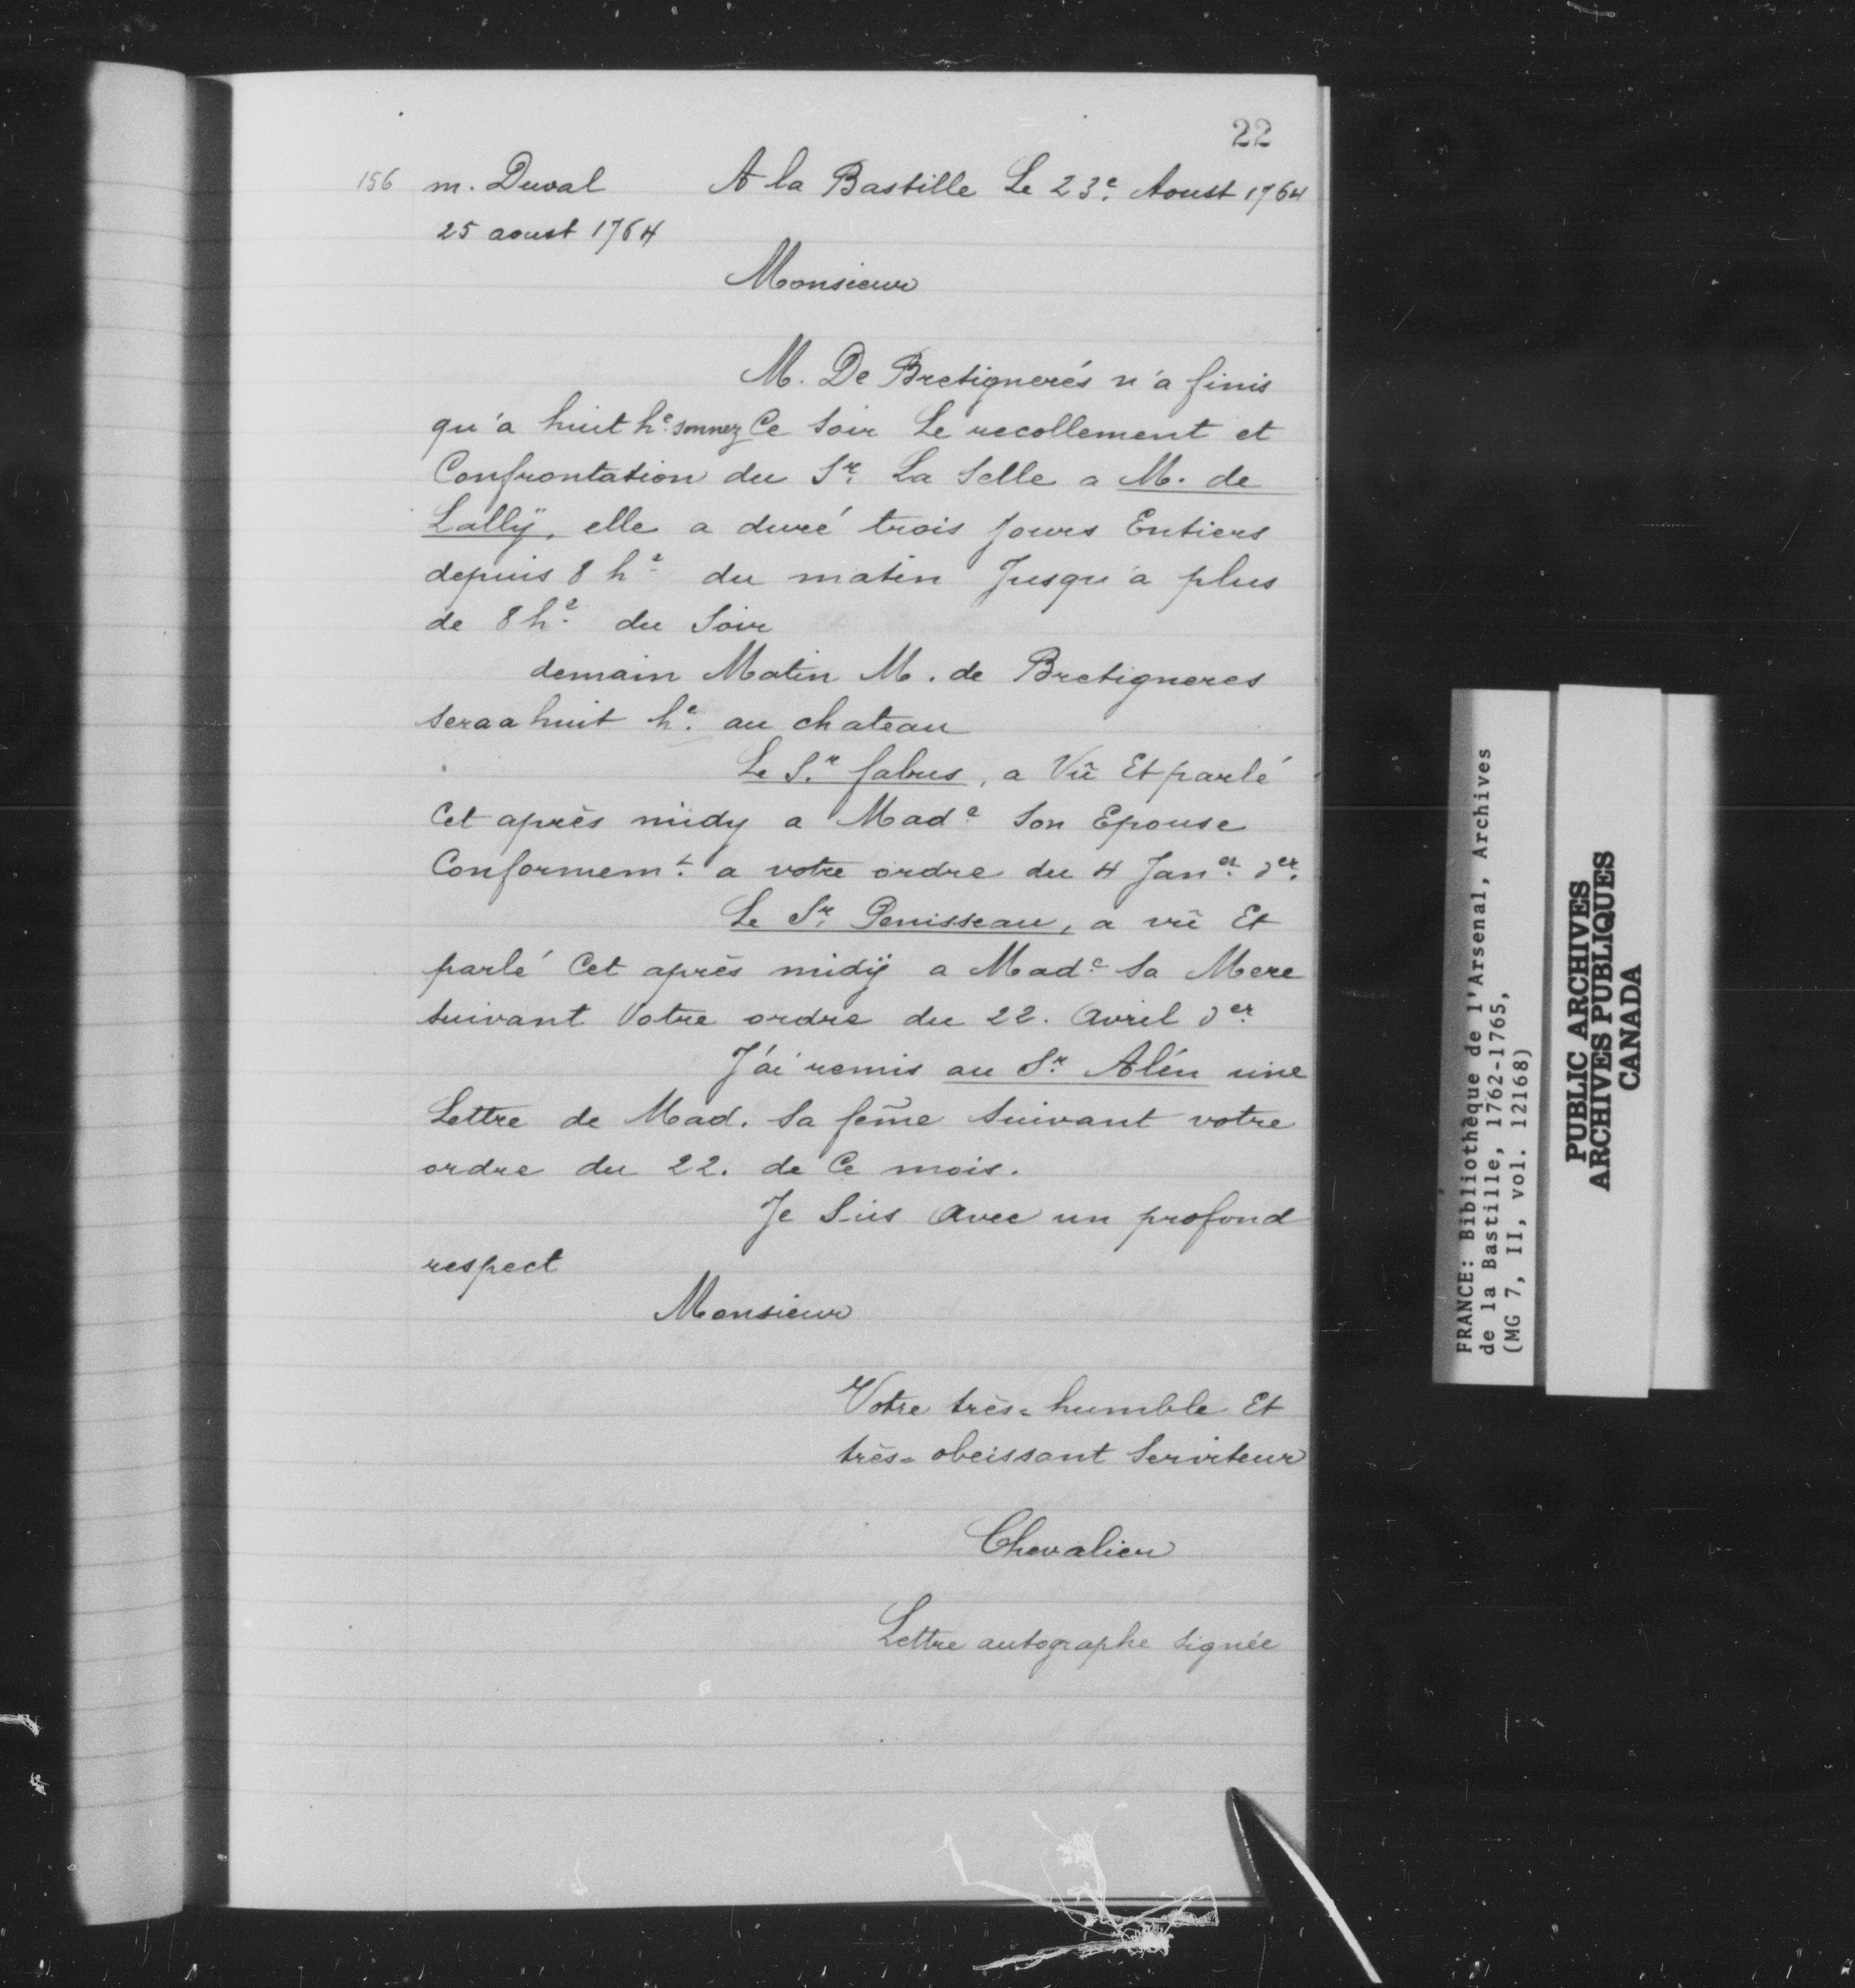 22
156 m. Duval A la Bastille Le 23e. Aoust 1764
25 aoust 1764
Monsieur
M. De Bretignerés n'a finis
qu'a huit he. sonnez Ce soir Le recollement et
Confrontation du Sr. La Selle a M. de
Lallÿ, elle a duré trois Jours Entiers
depuis 8 he. du matin Jusqu'a plus
de 8 he. du Soir
demain Matin M. de Bretigneres
sera a huit he. au chateau
Le Sr. fabus, a Vû Et parlé
Cet après midy a Made. Son Epouse
Conformemt. a votre ordre du 4 Janer. der.
Le Sr. Penisseau, a vû Et
parlé Cet après midÿ a Made. Sa Mere
suivant Votre ordre du 22. Avril der.
J'ái remis au Sr. Alén une
Lettre de Mad. Sa fem̃e suivant votre
ordre du 22. de Ce mois.
Je Suis Avec un profond
respect
Monsieur
Votre très=humble Et
très=obeissant Serviteur
Chevalier
Lettre autographe signée
FRANCE: Bibliothèque de l'Arsenal, Archives
de la Bastille, 1762-1765,
(MG 7, II, vol. 12168)
PUBLIC ARCHIVES
ARCHIVES PUBLIQUES
CANADA